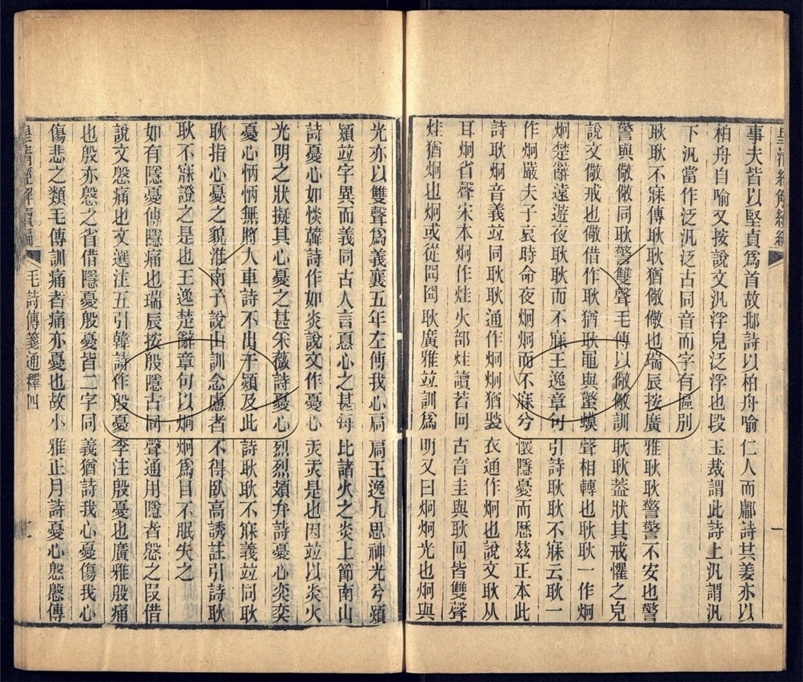 皇清經解續編
事夫皆以堅貞爲首故鄘詩以柏舟喻仁人而鄘詩其姜亦以
柏舟自喻又按說文汎浮皃泛浮也段玉裁謂此詩上汎謂汎
下汎當作泛汎泛古同音而字有區別
耿耿不寐傳耿耿猶儆儆也瑞辰按廣雅耿耿警警不安也警
警與儆儆同耿警雙聲毛傳以儆儆訓耿耿蓋狀其戒懼之皃
說文儆戒也儆借作耿猶耿黽與螌蟆聲相轉也耿耿一作炯
炯楚辭遠遊夜耿耿而不寐王逸章句引詩耿耿不寐云耿一
作炯嚴夫子哀時命夜炯炯而不寐兮懷隱憂而歷茲正本此
詩耿炯音義竝同耿耿通作炯炯猶褧衣通作炯也說文耿从
耳炯省聲宋本炯作烓火部烓讀若同古音圭與耿同皆雙聲
烓猶炯也炯或從冏冏耿廣雅竝訓爲明又曰炯炯光也炯與
光亦以雙聲爲義襄五年左傳我心扃扃王逸九思神光兮熲
熲竝字異而義同古人言憂心之甚每比諸火之炎上節南山
詩憂心如惔韓詩作如炎說文作憂心灻灻是也因竝以炎火
光明之狀擬其心憂之甚宋薇詩憂心烈烈頍弁詩憂心奕奕
憂心怲怲無將大車詩不出于熲及此詩耿耿不寐義竝同耿
耿指心憂之貌淮南子說山訓念慮者不得臥高誘註引詩耿
耿不寐證之是也王逸楚辭章句以炯炯爲目不眠失之
如有隱憂傳隱痛也瑞辰按殷隱古同聲通用隱者慇之叚借
說文慇痛也文選注五引韓詩作殷憂李注殷憂也廣雅殷痛
也殷亦慇之省借隱憂殷憂皆二字同義猶詩我心憂傷我心
傷悲之類毛傳訓痛者痛亦憂也故小雅正月詩憂心慇慇傳
皇清經解續編 毛詩傳箋通釋四